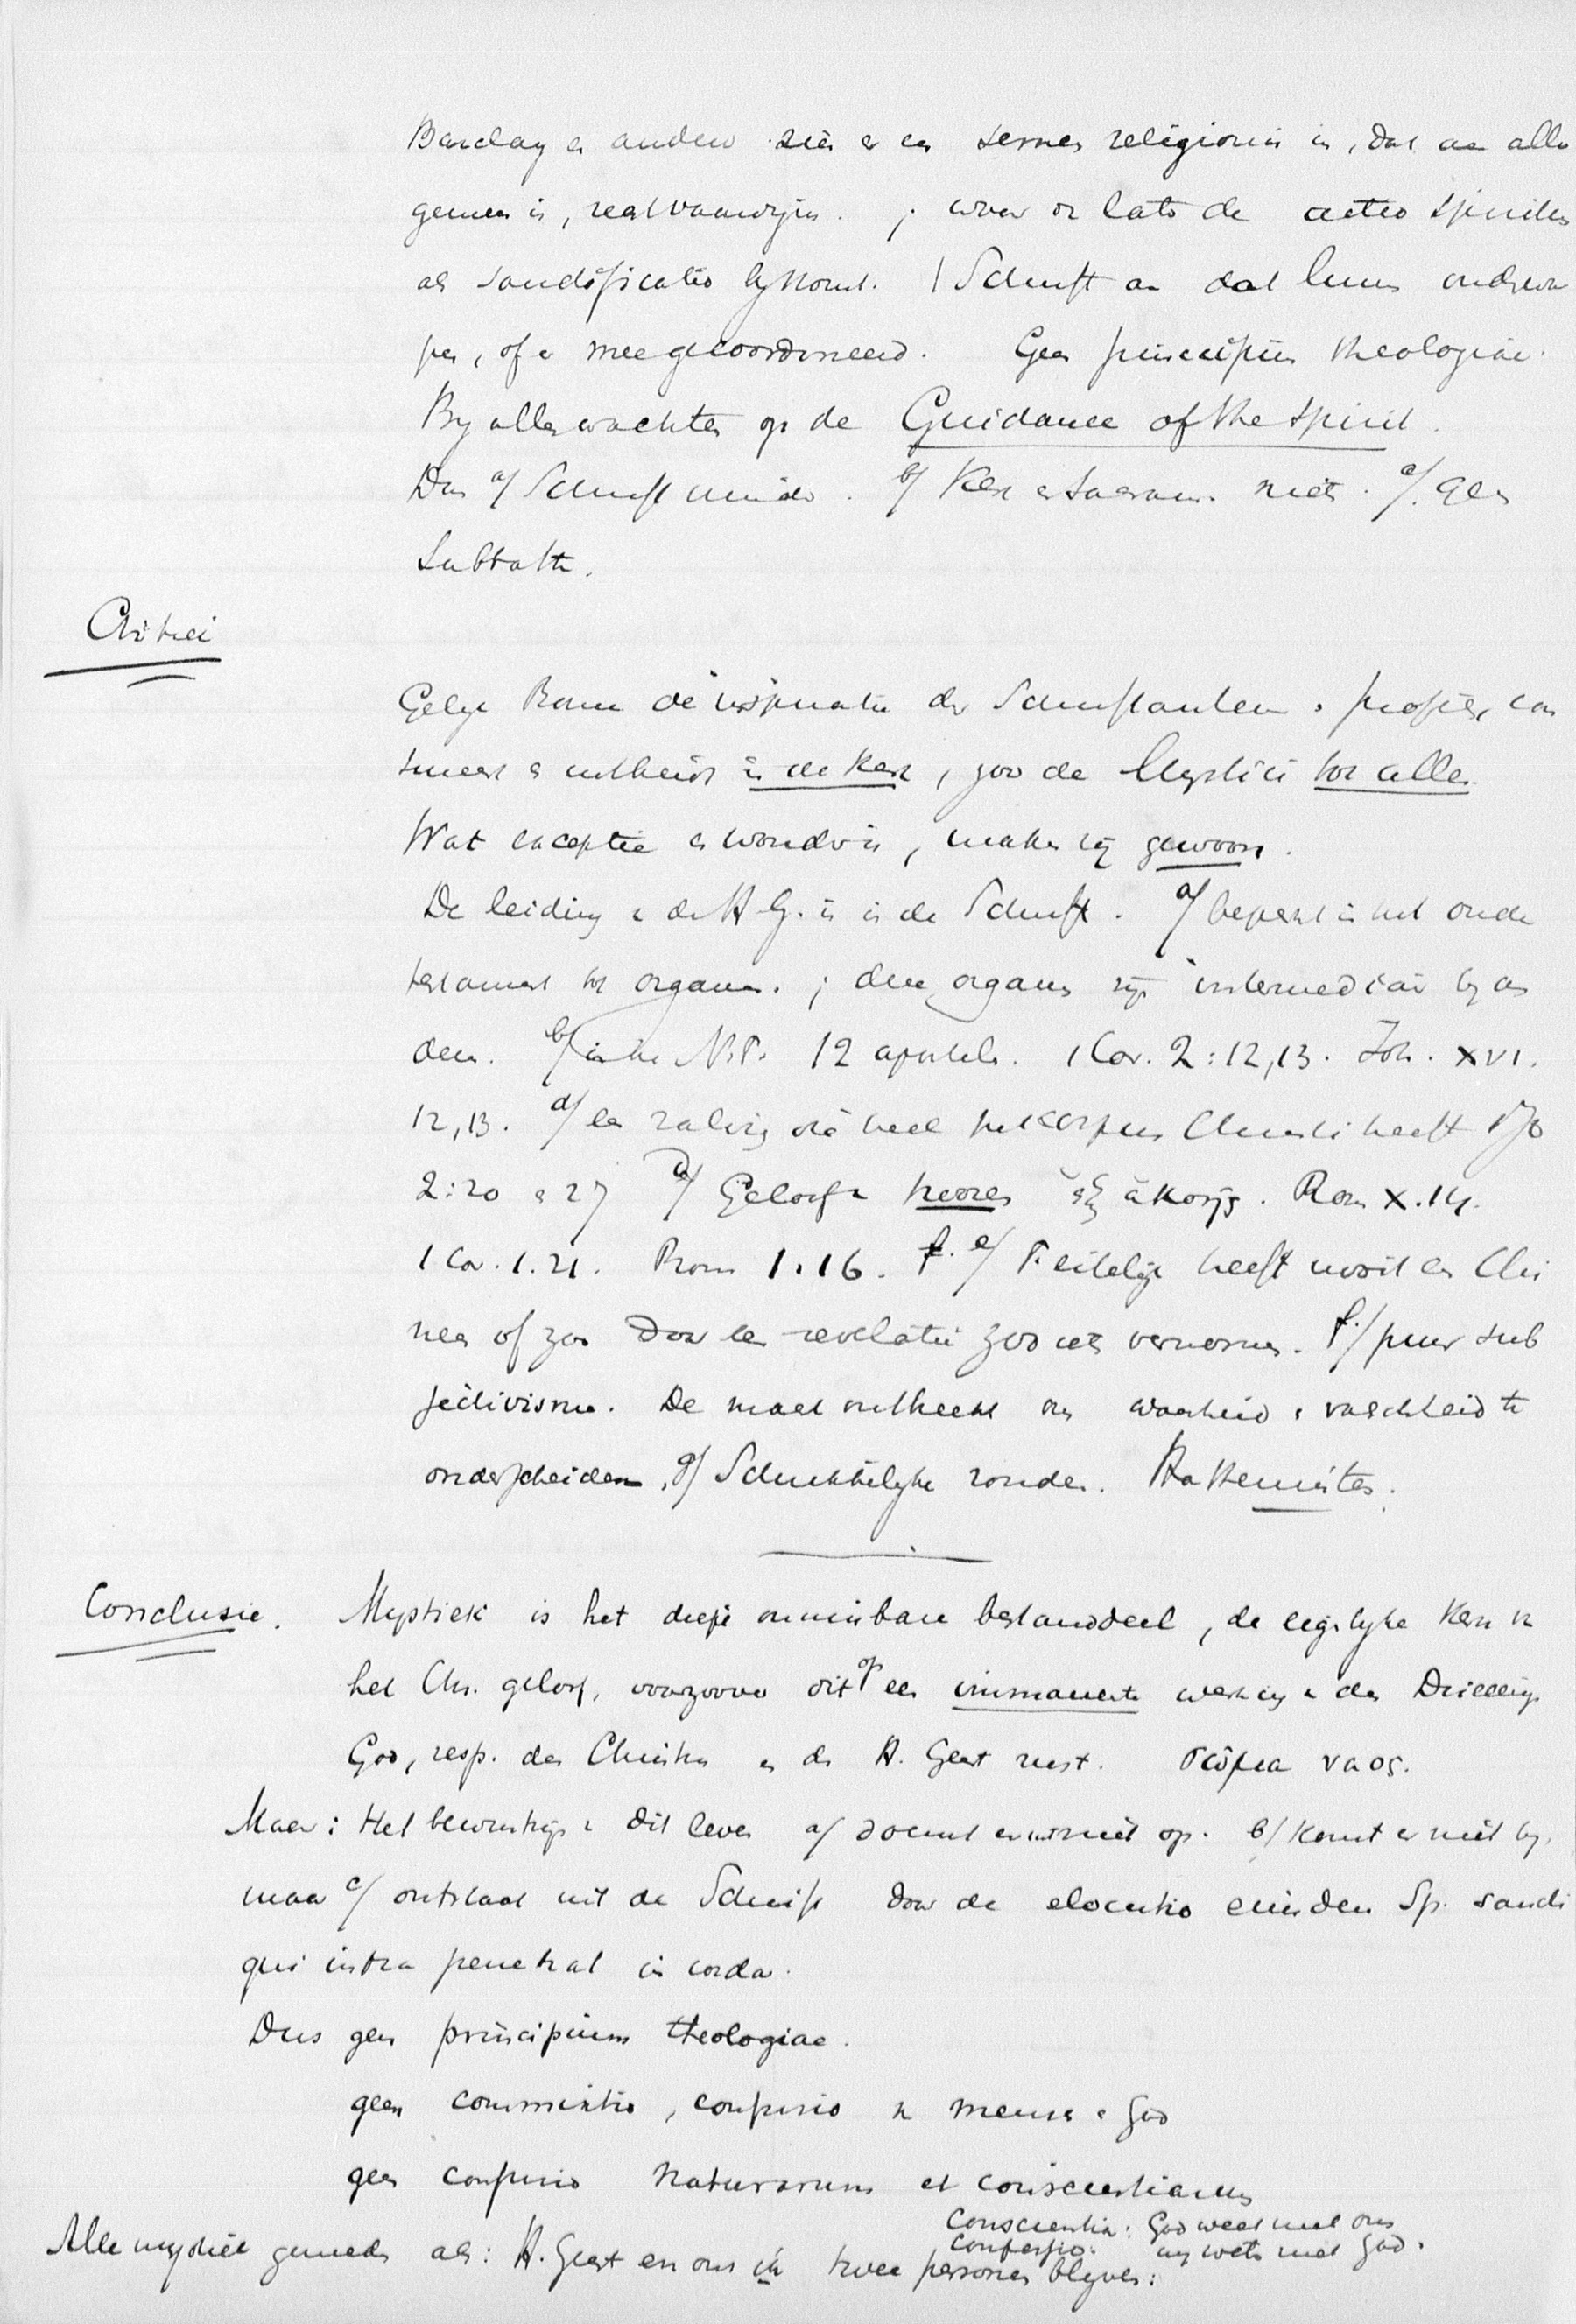 Barclay en anderen zien er een semen religionis in, dat aan allen
gemeen is, ; waar de actio Spiritus
als sanctificatio bijkomt. Schrift aan dat lumen onderwor
pen, of er mee gecoordineerd. Geen principium theologiae.
By alles wachten op de Guidance of the Spirit.
Dus a/ Schrift minder. b/ Kerk en Sacram. niet. c/ Geen
Sabbath.
Critiek
Gelijk Rome de inspiratie der Schrift profeten, con
en in de Kerk, zoo de Mystici tot allen.
Wat exceptie en wonder is, maken zij gewoon.
De leiding v. d. H. G. is in de Schrift. a/ beperkt in het oude
testament tot organen. ; deze organen zijn intermediair by an
deren. b/ in het N.T. 12 apostelen. 1 Cor. 2:12,13. Joh. XVI.
12,13. een zalving die heel het corpus Christi heeft 1 Jo
2:20 en 27 d/ Geloof v. hooren ἐξ ἀκοῆς. Rom X.14.
1 Cor. 1.21. Rom 1.16. e/ Feitelijk heeft nooit een Chi
nees of zoo door een revelatie zoo iets vernomen. f./ puur sub
jectivisme. De maat ontbreekt om waarheid en valschheid te
onderscheiden. g/ Schrikkelyke zonden. Hattemisten.
Conclusie. Mystiek is het diepe onmisbare bestanddeel, de eigenlyke Kern v.
het Chr. geloof, voorzoover dit op een immanente werking v. den Drieeenigen
God, resp. den Christus en de H. Geest rust. σῶμα ναος.
Maar: Het bewustzijn v. dit leven a/ doemt er niet op. b/ komt er niet by,
maar c/ ontstaat uit de Schrift door de elocutio eiusdem Sp. sancti
qui intra penetrat in corda.
Dus geen principium theologiae.
geen commixtio, confusio v. mensch en God
geen confusio naturarum et conscientiarum
Conscientia: God weet met ons
Confessio: wy weten met God.
Alle mystiek gemeden als: H. Geest en ons ik twee personen blyven: